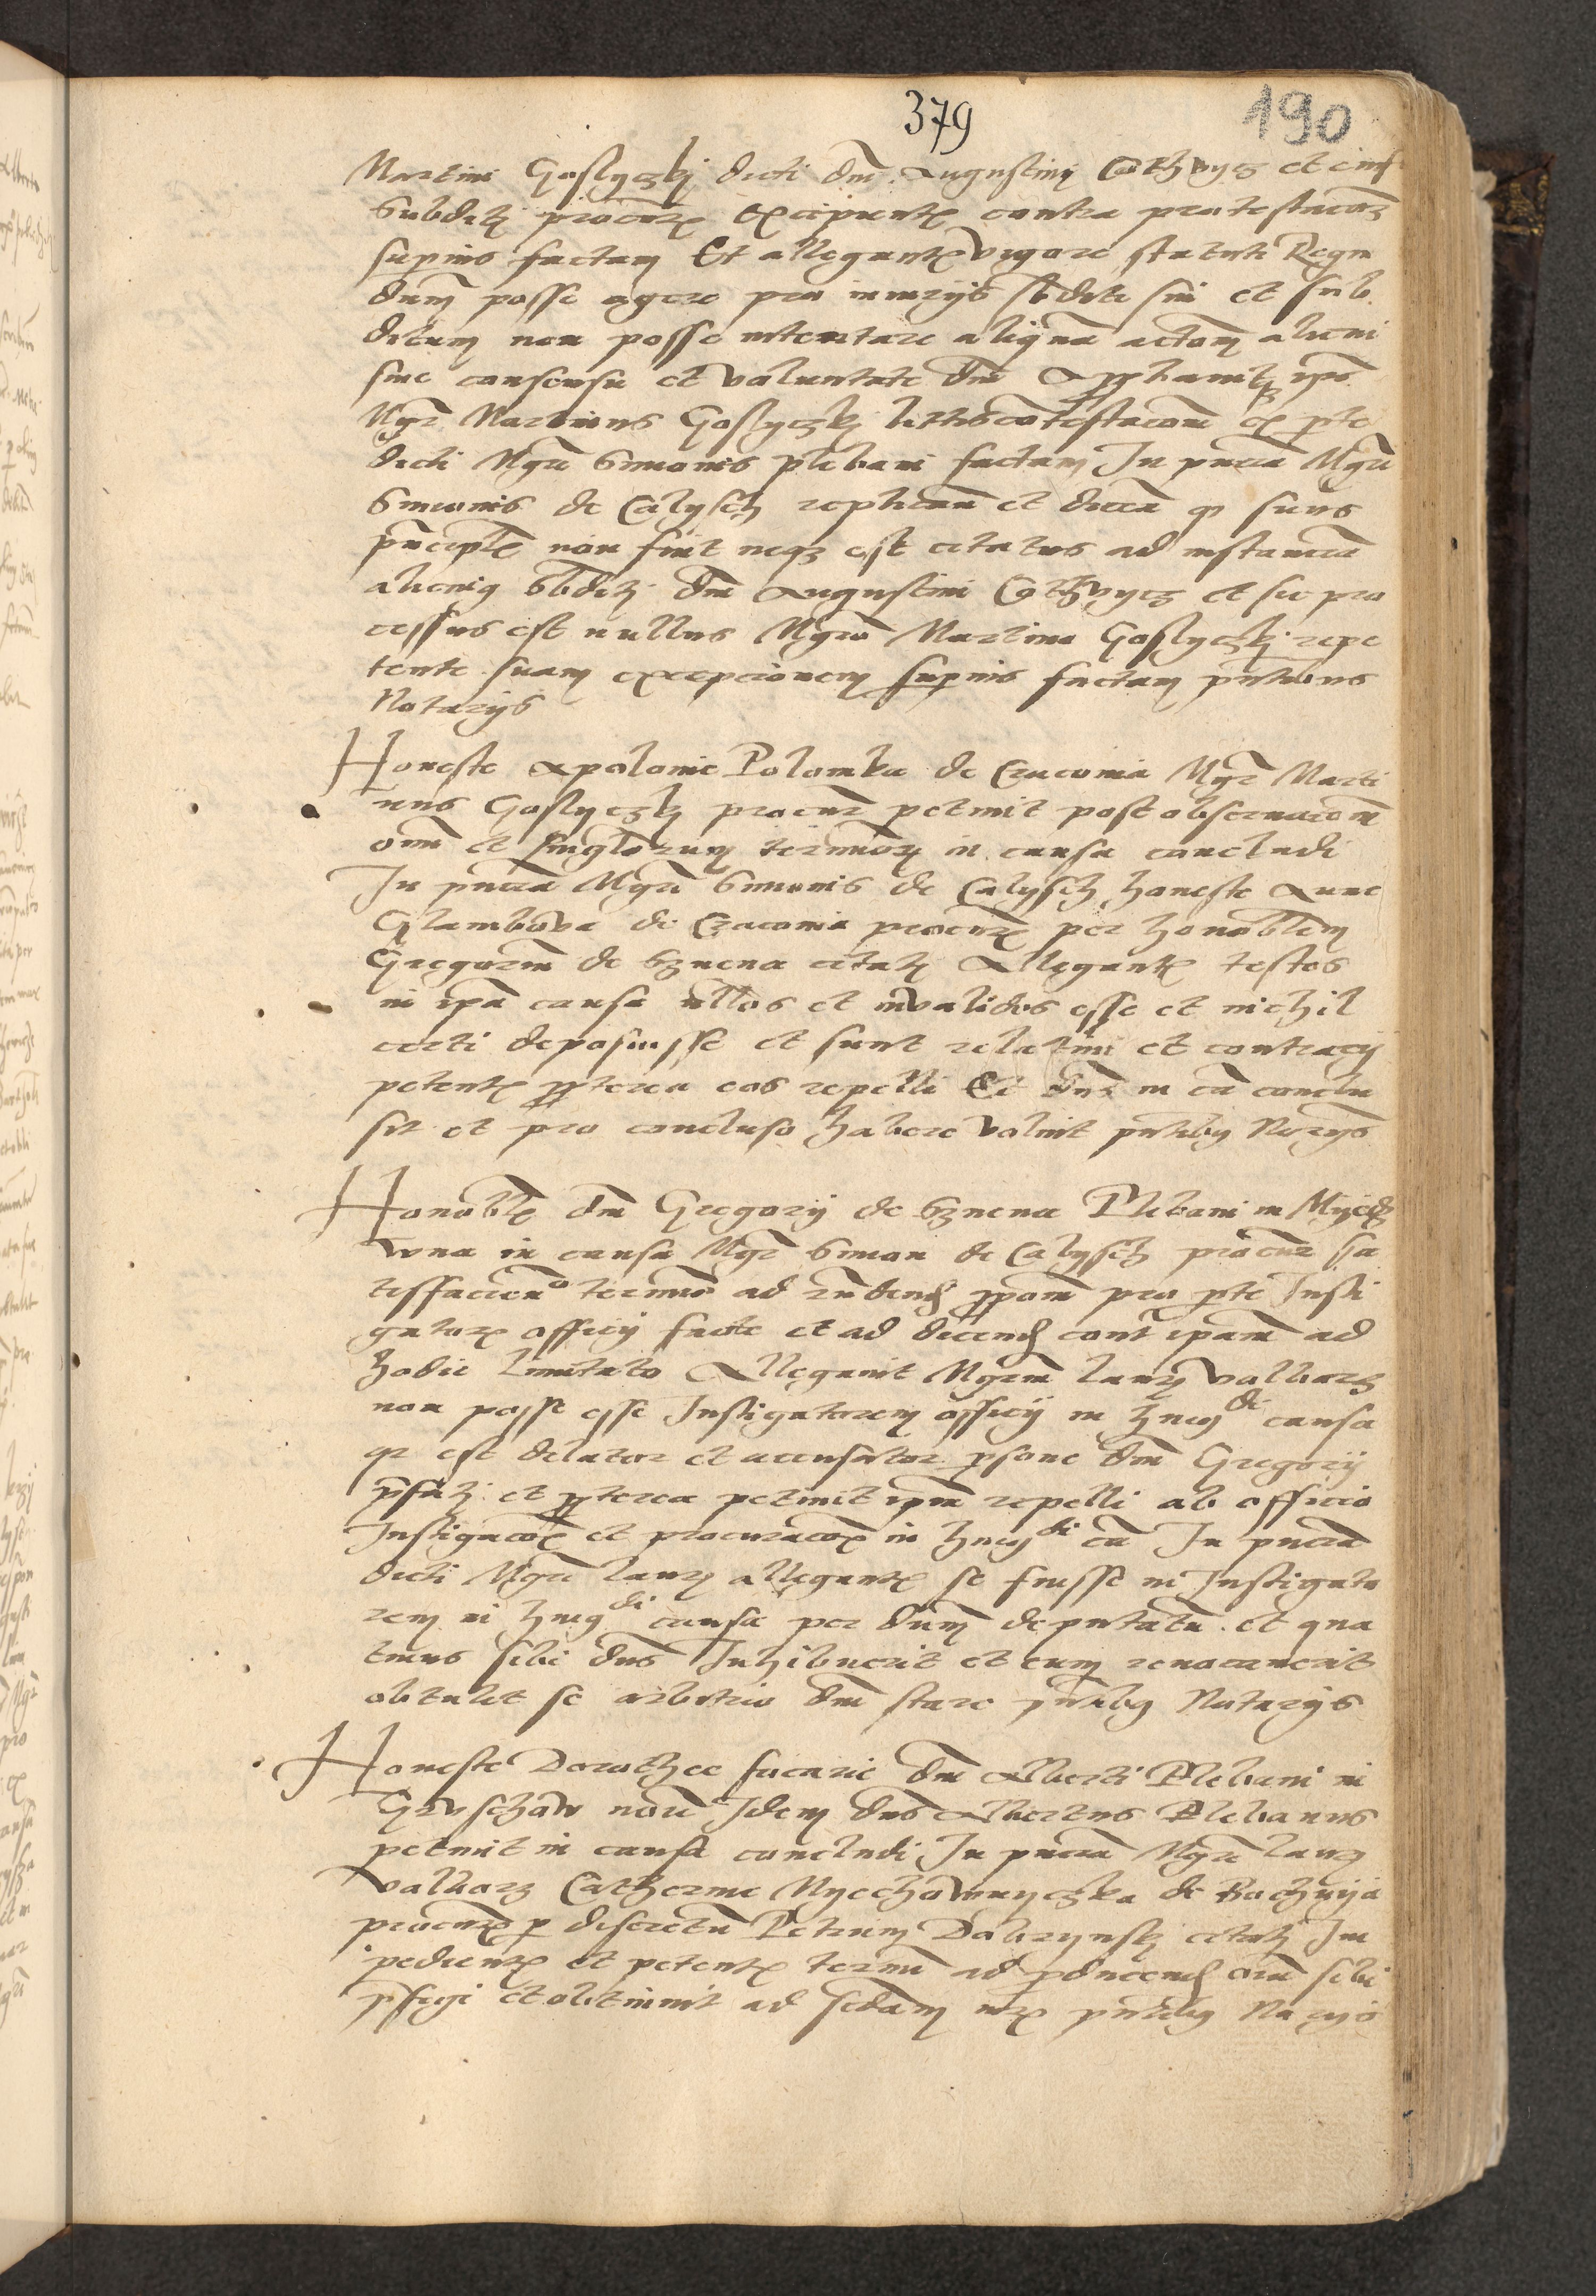 379 190
Martini Goslyczkj dicti dni Augustini Cothwycz et eius
subditj procuris excipientis contra protestacoem
superius factam Et allegantis vigore statuti Regni
dnum posse agere pro iniurijs sbditi sui et sub
ditum non posse intentare aliqua actoem alicui
sine consensu et voluntate dni
Mgr Martinus Goslyczkj littis contestacoem ex pte
dicti Mgri Simonis plebani factam In pncia Mgri
Simonis de Calysch replican et dicen q suus
principlis non fuit neqz est citatus ad instancia
alicuiq sbditj dni Augustini Cothwycz et sic pro
cessus est nullus Mgro Martino Goslyczkj repe
tente suam excepcionem superius factam pntibus
Notarijs
Honeste Apolonie Polomka de Cracouia Mgr Marti
nus Goslyczkj procur petiuit post obseruacoem
oim et singlorum terminor in causa concludi
In pncia Mgri Simonis de Calysch honeste Anne
Glambowa de Cracouia procuris per honoblem
Gregorium de Sznena citate Allegantis testes
in ipa causa nllos et inualidos esse et nichil
certi deposuisse et sunt relatiui et contrarij
petentis ppterea eos repelli Et dns in ca conclu
sit et pro concluso habere voluit pntibus Norijs
Honoblis dni Gregorij de Sznena Plebani in
wna in causa Mgr Simon de Calysch procur sa
tisfacien termino ad rndend pposom pro pte Insti
gatoris officij facte et ad dicend cont ipam ad
hodie limitato Allegauit Mgrum Laur valbarz
non posse esse Instigatorem officij in hmoj di causa
qr est delator et accusator psone dni Gregorij
pfati et ppterea petiuit ipm repelli ab officio
Instigacois et procuracois in hmoj di ca In pncia
dicti Mgri Laur allegantis se fuisse in Instigato
rem in hmoj di causa per dnum deputatu et qua
tinus sibi dns Inhibuerit et eum reuocauerit
obtulit se arbitrio dni stare pntibus Notarijs
Honeste Dorothee focarie dni Alberti Plebani in
Gruschow noie Idem dns Albertus Plebanus
petiuit in causa concludi In pncia Mgri Laur
valbarz Catherine Myechowmyczka de Bochnija
procuris p discretu Petrum Dobrynskj citate Im
pedientis et petentis terminu ad pducend oia sibi
pfigi et obtinuit ad scdam iur pntibus No rijs